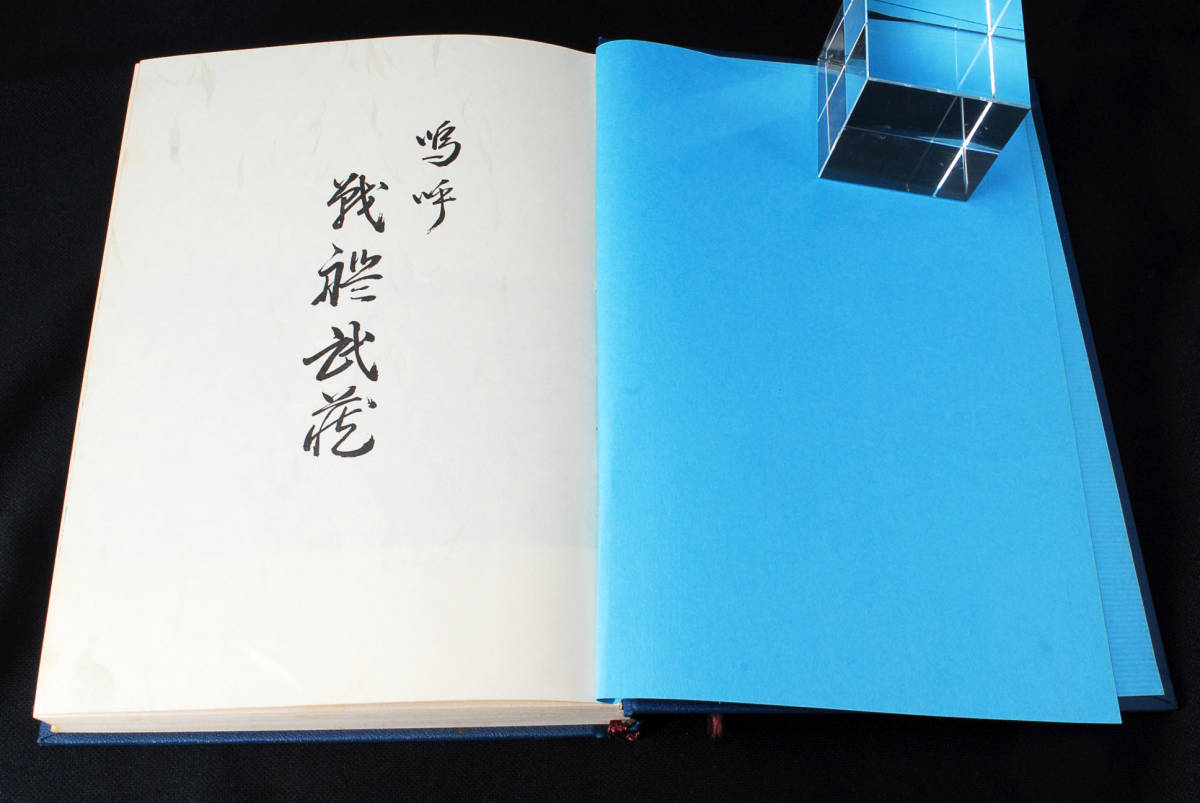 嗚呼
戦艦武蔵